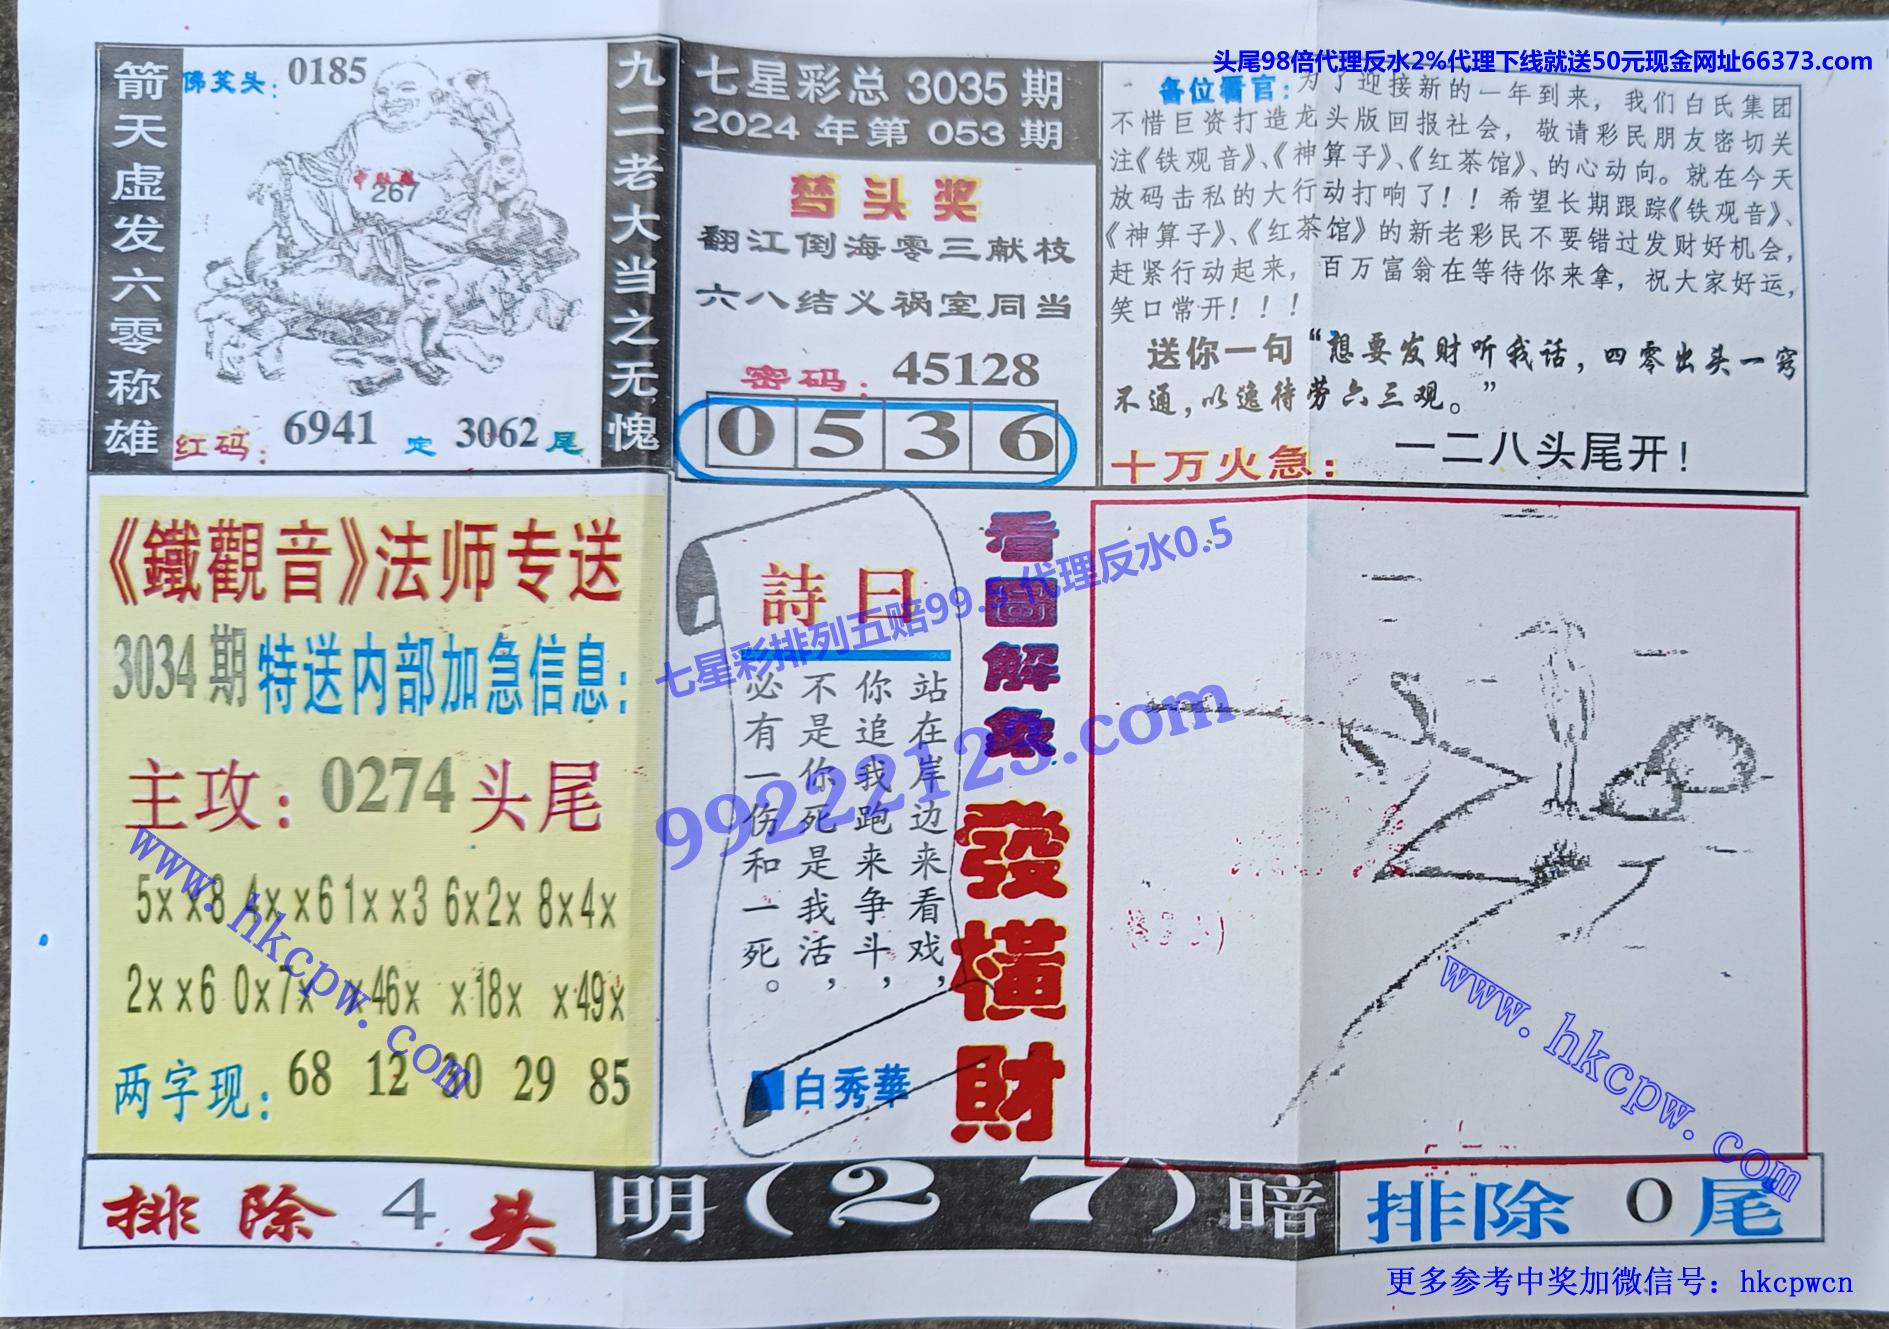 头尾98倍代理反水2%代理下线就送50元现金网址66373.com
箭天虚发六零称雄
佛笑头：0185
267
红码：6941 定 3062 尾
九二老大当之无愧
七星彩总 3035 期
2024 年第 053 期
梦头奖
翻江倒海零三献枝
六八结义祸室同当
密码：45128
0 5 3 6
各位看官：为了迎接新的一年到来，我们白氏集团
不惜巨资打造龙头版回报社会，敬请彩民朋友密切关
注《铁观音》、《神算子》、《红茶馆》、的心动向。就在今天
放码击私的大行动打响了！！希望长期跟踪《铁观音》、
《神算子》、《红茶馆》的新老彩民不要错过发财好机会，
赶紧行动起来，百万富翁在等待你来拿，祝大家好运，
笑口常开！！！
送你一句“想要发财听我话，四零出头一窍
不通，以逸待劳六三观。”
十万火急：一二八头尾开！
《鐵觀音》法师专送
3034期特送内部加急信息：
主攻：0274头尾
5××8 4××6 1××3 6×2× 8×4×
2××6 0×7× ×46× ×18× ×49×
两字现：68 12 30 29 85
詩曰
站在岸边来看戏，
你追我跑来争斗，
不是你死是我活，
必有一伤和一死。
白秀華
看圖解象
發橫財
七星彩排列五赔99.5代理反水0.5
99222123.com
www.hkcpw.com
www.hkcpw.com
排除 4 头
明（2 7）暗
排除 0 尾
更多参考中奖加微信号：hkcpwcn